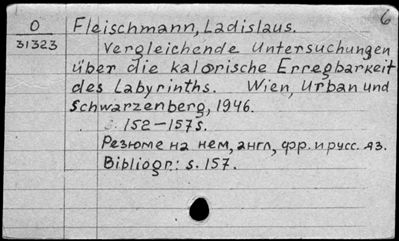 6
О Fleischmann, Ladislaus.
31323
Vergleichende Untersuchungen
über die kalorische Erregbarkeit
des Labyrinths. Wien, Urban und
Schwarzenberg, 1946.
s. 152-157 s.
Резюме на нем, англ, фр. и русс. яз.
Bibliogr.: s. 157.